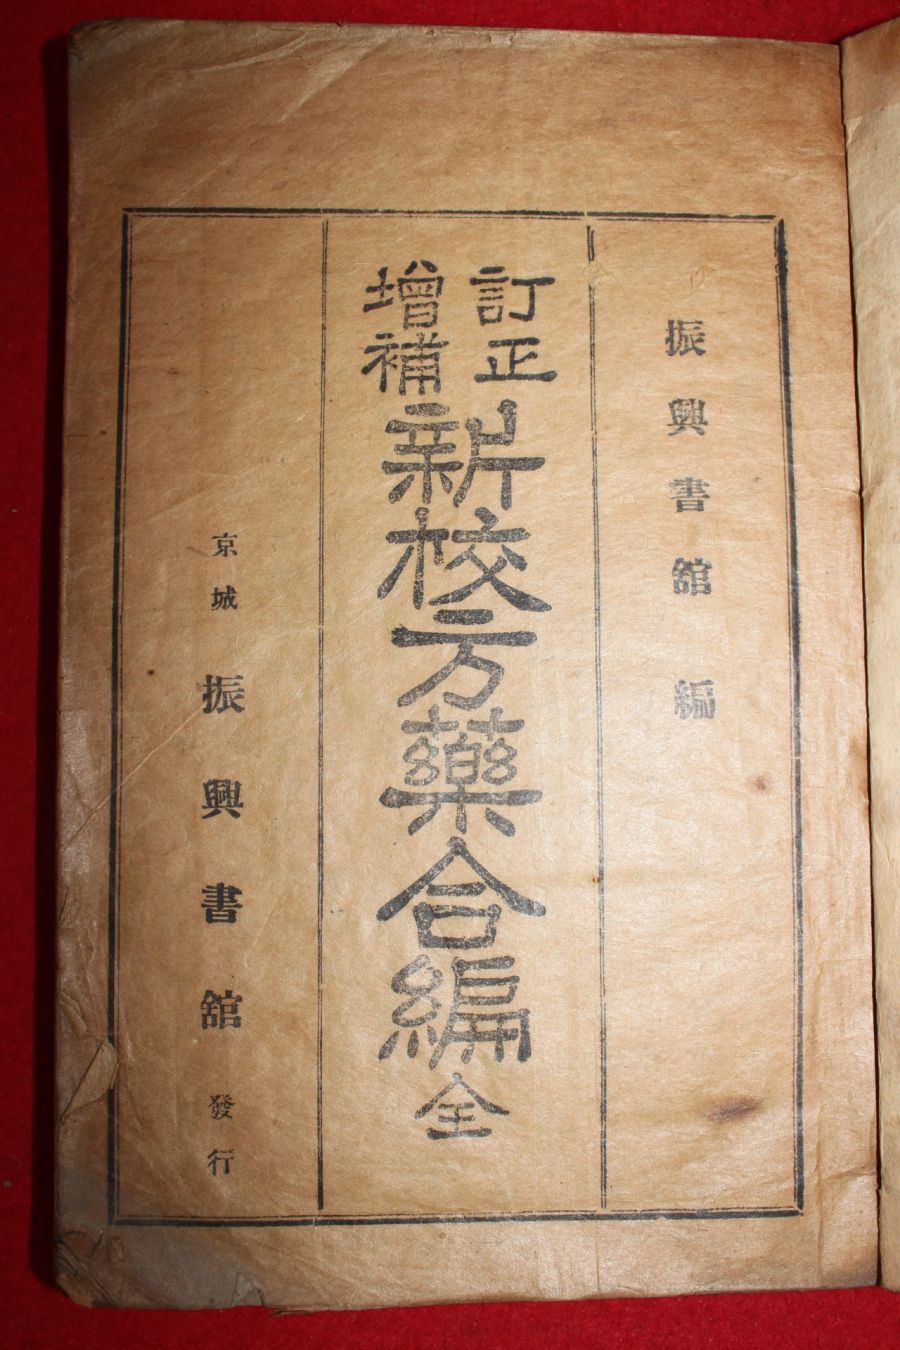 振興書舘編
訂正
增補
新校方藥合編全
京城振興書舘發行